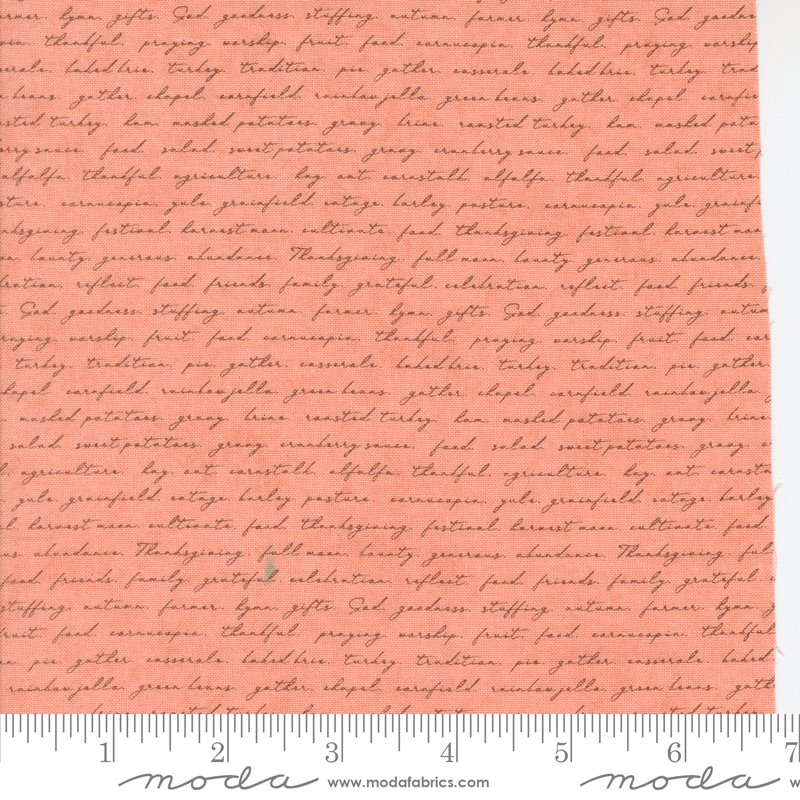 hymn, gifts, God, goodness, stuffing, autumn, farmer, hymn, gifts, God, goodne
thankful, praying, worship, fruit, food, cornucopia, thankful, praying, worship
baked brie, turkey, tradition, pie, gather, casserole, baked brie, turkey, trad
beans, gather, chapel, cornfield, rainbow jello, green beans, gather, chapel, cornfie
sted turkey, ham, mashed potatoes, gravy, brine, roasted turkey, ham, mashed pota
rry sauce, food, salad, sweet potatoes, gravy, cranberry sauce, food, salad, sweet p
alfalfa, thankful, agriculture, hay, oat, cornstalk, alfalfa, thankful, agriculture
sture, cornucopia, yule, grainfield, cotage, barley, pasture, cornucopia, yule, grainfi
nksgiving, festival, harvest moon, cultivate, food, thanksgiving, festival, harvest moo
bounty, generous, abundance, Thanksgiving, full moon, bounty, generous, abundance
bration, reflect, food, friends, family, grateful, celebration, reflect, food, friends, f
God, goodness, stuffing, autumn, farmer, hymn, gifts, God, goodness, stuffing, autum
raying, worship, fruit, food, cornucopia, thankful, praying, worship, fruit, food, cor
turkey, tradition, pie, gather, casserole, baked brie, turkey, tradition, pie, gather
chapel, cornfield, rainbow jello, green beans, gather, chapel, cornfield, rainbow jello
mashed potatoes, gravy, brine, roasted turkey, ham, mashed potatoes, gravy, brine
salad, sweet potatoes, gravy, cranberry sauce, food, salad, sweet potatoes, gravy, c
agriculture, hay, oat, cornstalk, alfalfa, thankful, agriculture, hay, oat, cornsta
yule, grainfield, cotage, barley, pasture, cornucopia, yule, grainfield, cotage, barley
l, harvest moon, cultivate, food, thanksgiving, festival, harvest moon, cultivate, food
us, abundance, Thanksgiving, full moon, bounty, generous, abundance, Thanksgiving, ful
food, friends, family, grateful, celebration, reflect, food, friends, family, grateful, c
stuffing, autumn, farmer, hymn, gifts, God, goodness, stuffing, autumn, farmer, hymn, g
fruit, food, cornucopia, thankful, praying, worship, fruit, food, cornucopia, thankful
pie, gather, casserole, baked brie, turkey, tradition, pie, gather, casserole, baked
rainbow jello, green beans, gather, chapel, cornfield, rainbow jello, green beans, gath
1 2 3 4 5 6 7
moda www.modafabrics.com moda w